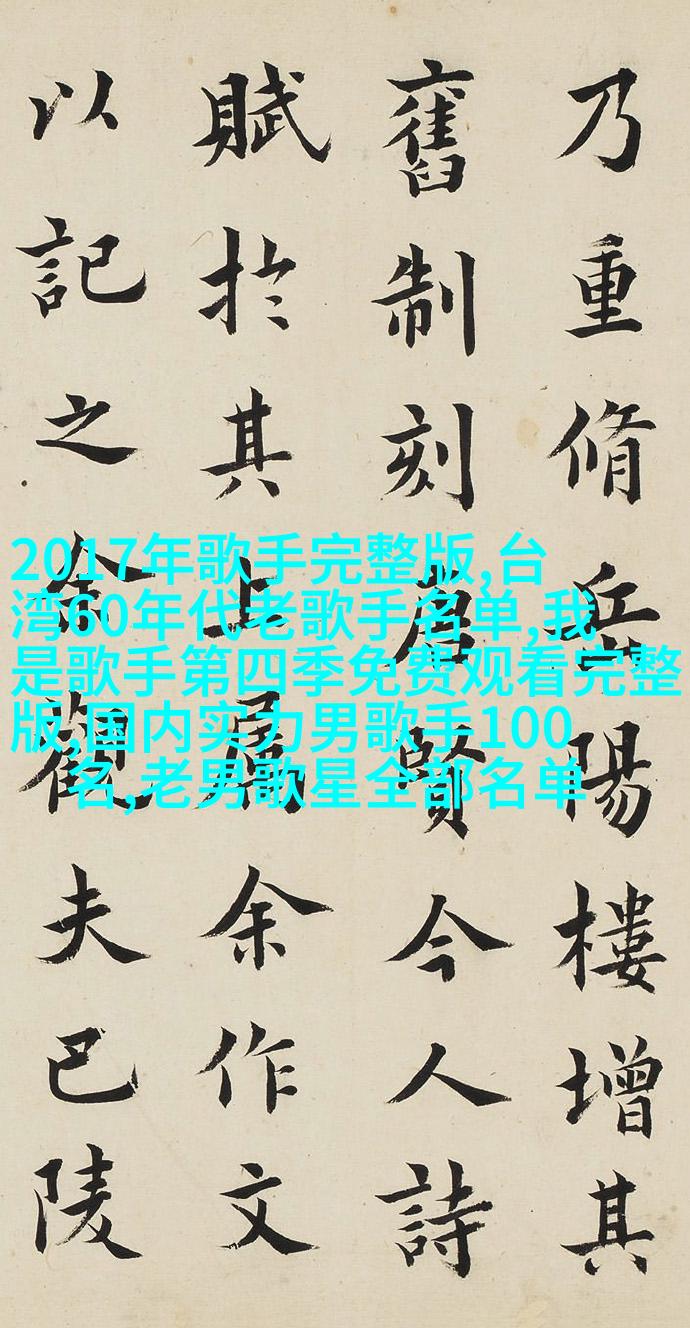 乃重脩岳陽樓增其
舊制刻唐賢今人詩
賦於其上屬余作文
以記之余觀夫巴陵
2017年歌手完整版,台
湾60年代老歌手名单,我
是歌手第四季免费观看完整
版,国内实力男歌手100
名,老男歌星全部名单